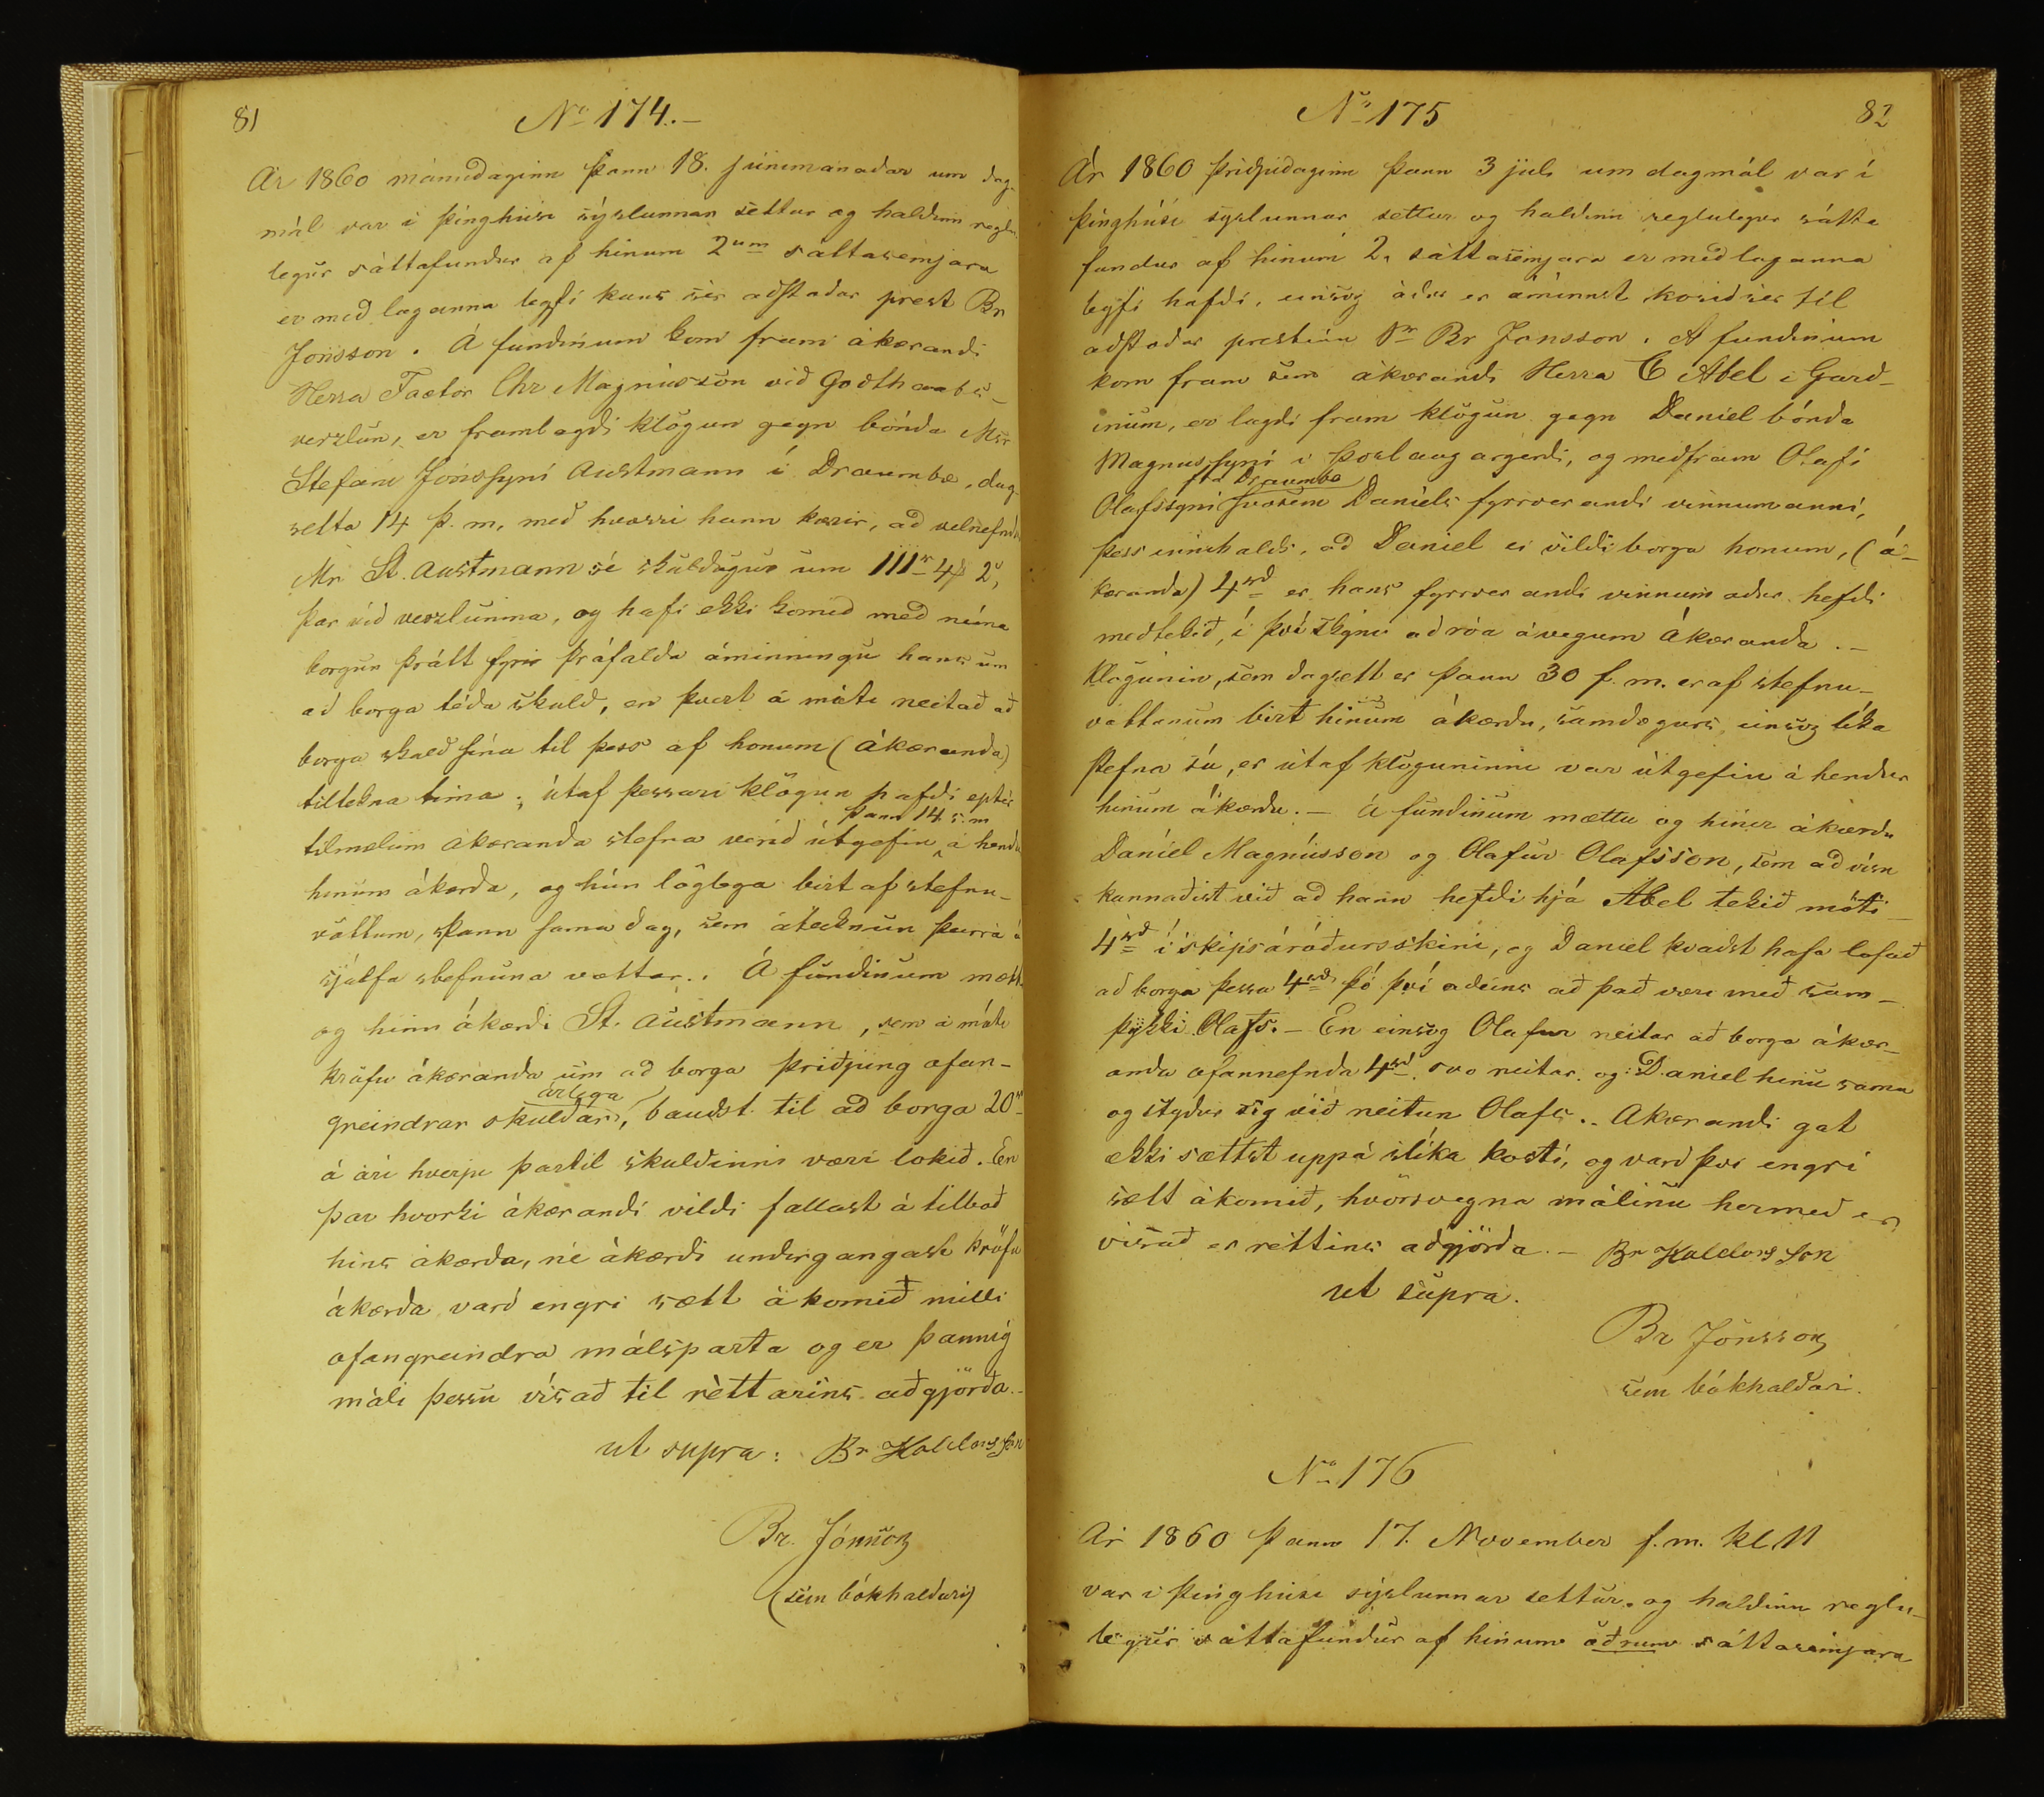 81
No 174.–
Ár 1860 mánudaginn þann 18. júnimanadar um dag-
mál var i þinghúsi sýslunnar settur og haldinn reglu-
legur sáttafundur af hinum 2um sáttasemjara
er með laganna leyfi kaus sér aðstodar prest Br
Jónsson. Á fundinum kom fram ákærandi
Herra Factor Chr Magnússon við Godthaabs-
verzlun, er framlagdi klögun gegn bónda Mr
Stefáni Jónssyni Austmann í Draumbæ, dag-
setta 14 þ.m. með hvorri hann kærir, að velnefndr
Mr. St. Austmann sé skuldugur um 111r 4/ 2s,
þar við verzlunina, og hafi ekki komid með neina
borgun þrátt fyrir þráfalda áminningu hans um
að borga téda skuld, en þvert á móti neitað að
borga skuld sína til þess af honum (ákæranda)
tiltekna tima; útaf þessari klögun hafdi eptir
þann 14 s.m
tilmælum ákæranda stefna verid útgefin á hendr
hinum ákærda, og hún löglega birt af stefnu-
vottum, þann sama dag, sem áteiknun þeirra á
sjálfa stefnuna vottar. Á fundinum mætti
og hinn ákærdi St. Austmann, sem á móti
kröfu ákæranda um að borga þriðjung ofan-
árlega
greindrar skuldar, baudst til að borga 20r
á ári hverju þartil skuldinni væri lokið. En
þar hvorki ákærandi vildi fallast á tilboð
hins ákærda, né ákærdi undirgangast kröfu
ákærda vard engri sætt ákomið milli
ofangreindra málsparta og er þannig
máli þessu vísað til réttarins aðgjörða.–
ut supra: Br Halldorsson
Br. Jónsson
(sem bókhaldari)
No 175
82
Ár 1860 þriðjudaginn þann 3 juli um dagmál var í
þinghúsi syslunnar settur og haldinn reglulegur sátta
fundur af hinum 2. sáttasemjara er með laganna
leyfi hafdi, einsog ádur er áminnst kosid sér til
aðstodar prestinn Sr Br Jonsson. A fundinum
kom fram sem ákærandi Herra C Abel i Gard-
inum, er lagdi fram klögun gegn Daniel bónda
Magnussyni i Þorlaugargerdi, og medfram Olafi
frá Draumbæ
Olafssyni svosem Daniels fyrrverandi vinnumanni,
þess innihalds, að Daniel ei vildi borga honum, (á-
kæranda) 4rd er hans fyrrverandi vinnumadur hefdi
meðtekið, í því skyni að róa á vegum Ákæranda.–
Klögunin, sem dagsett er þann 30 f.m. er af stefnu-
vottunum birt hinum ákærdu, samdægurs, einsog líka
stefna sú, er útaf klöguninni var útgefin á hendur
hinum ákærdu.– Á fundinum mættu og hinir ákærdu
Daníel Magnússon og Olafur Olafsson, sem að vísu
kannaðist við að hann hefði hjá Abel tekið móti
4rd í skipsáróðursskini, og Daniel kvaðst hafa lofað
að borga þessa 4rd þó því adeins að það væri með sam-
þykki Olafs.– En einsog Olafur neitar að borga ákær-
anda ofannefnda 4rd svo neitar og Daniel hinu sama
og stydur sig við neitun Olafs.– Akærandi gat
ekki sættst uppá slíka kosti, og varð því engri
sætt ákomið, hvörsvegna málinu hermeð er
vísað er réttins aðgjörða.– Br Halldorsson
ut supra.
Br Jónsson
sem bókhaldari.
No 176
Ár 1860 þann 17. November f.m. kl. 11
var i þinghúsi sýslunnar settur og haldinn reglu-
legur sáttafundur af hinum öðrum sáttasemjara